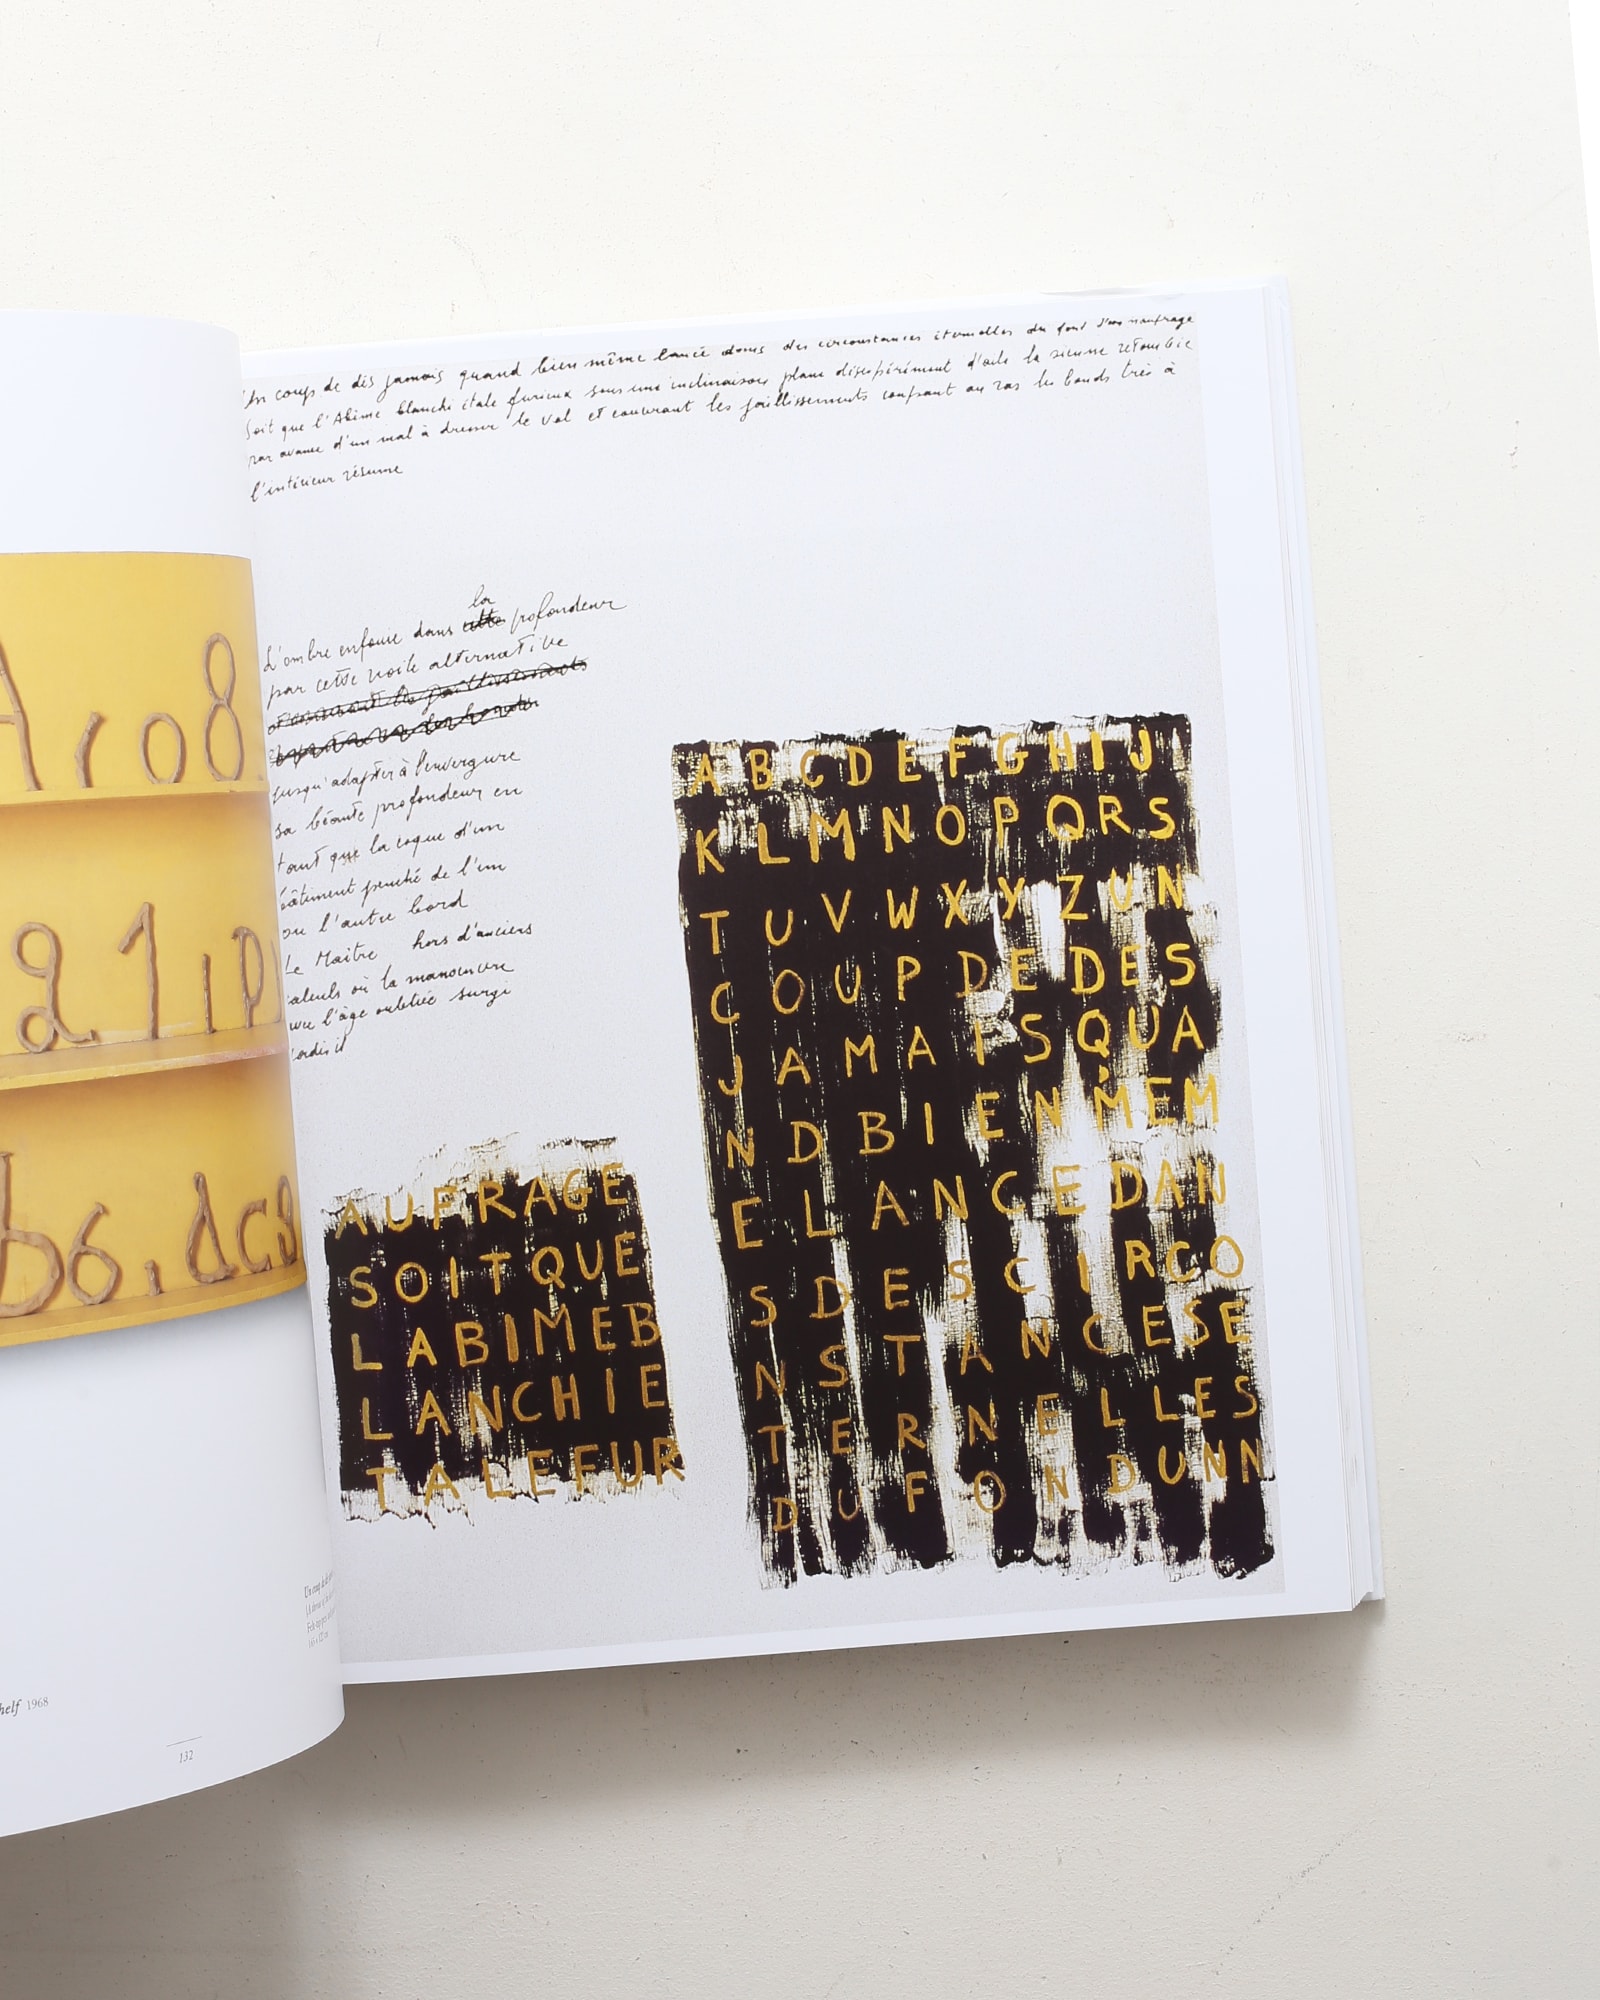 A108
21,
b6,dc8
helf 1968
132
Un coup de dés jamais quand bien même lancé dans des circonstances éternelles du fond d'un naufrage
Soit que l'Abîme blanchi étale furieux sous une inclinaison plane désespérément d'aile la sienne retombée
par avance d'un mal à dresser le vol et couvrant les jaillissements coupant au ras les bonds très à
l'intérieur résume
la
L'ombre enfouie dans cette profondeur
par cette voile alternative
jusqu'adapter à l'envergure
sa béante profondeur en
tant que la coque d'un
bâtiment penché de l'un
ou l'autre bord
Le Maître hors d'anciens
calculs où la manoeuvre
avec l'âge oubliée surgi
jadis il
AUFRAGE
SOITQUE
LABIMEB
LANCHIE
TALEFUR
ABCDEFGHIJ
KLMNOPQRS
TUVWXYZUN
COUPDEDES
JAMAISQUA
NDBIENMEM
ELANCEDAN
SDESCIRCO
NSTANCESE
TERNELLES
DUFONDUNN